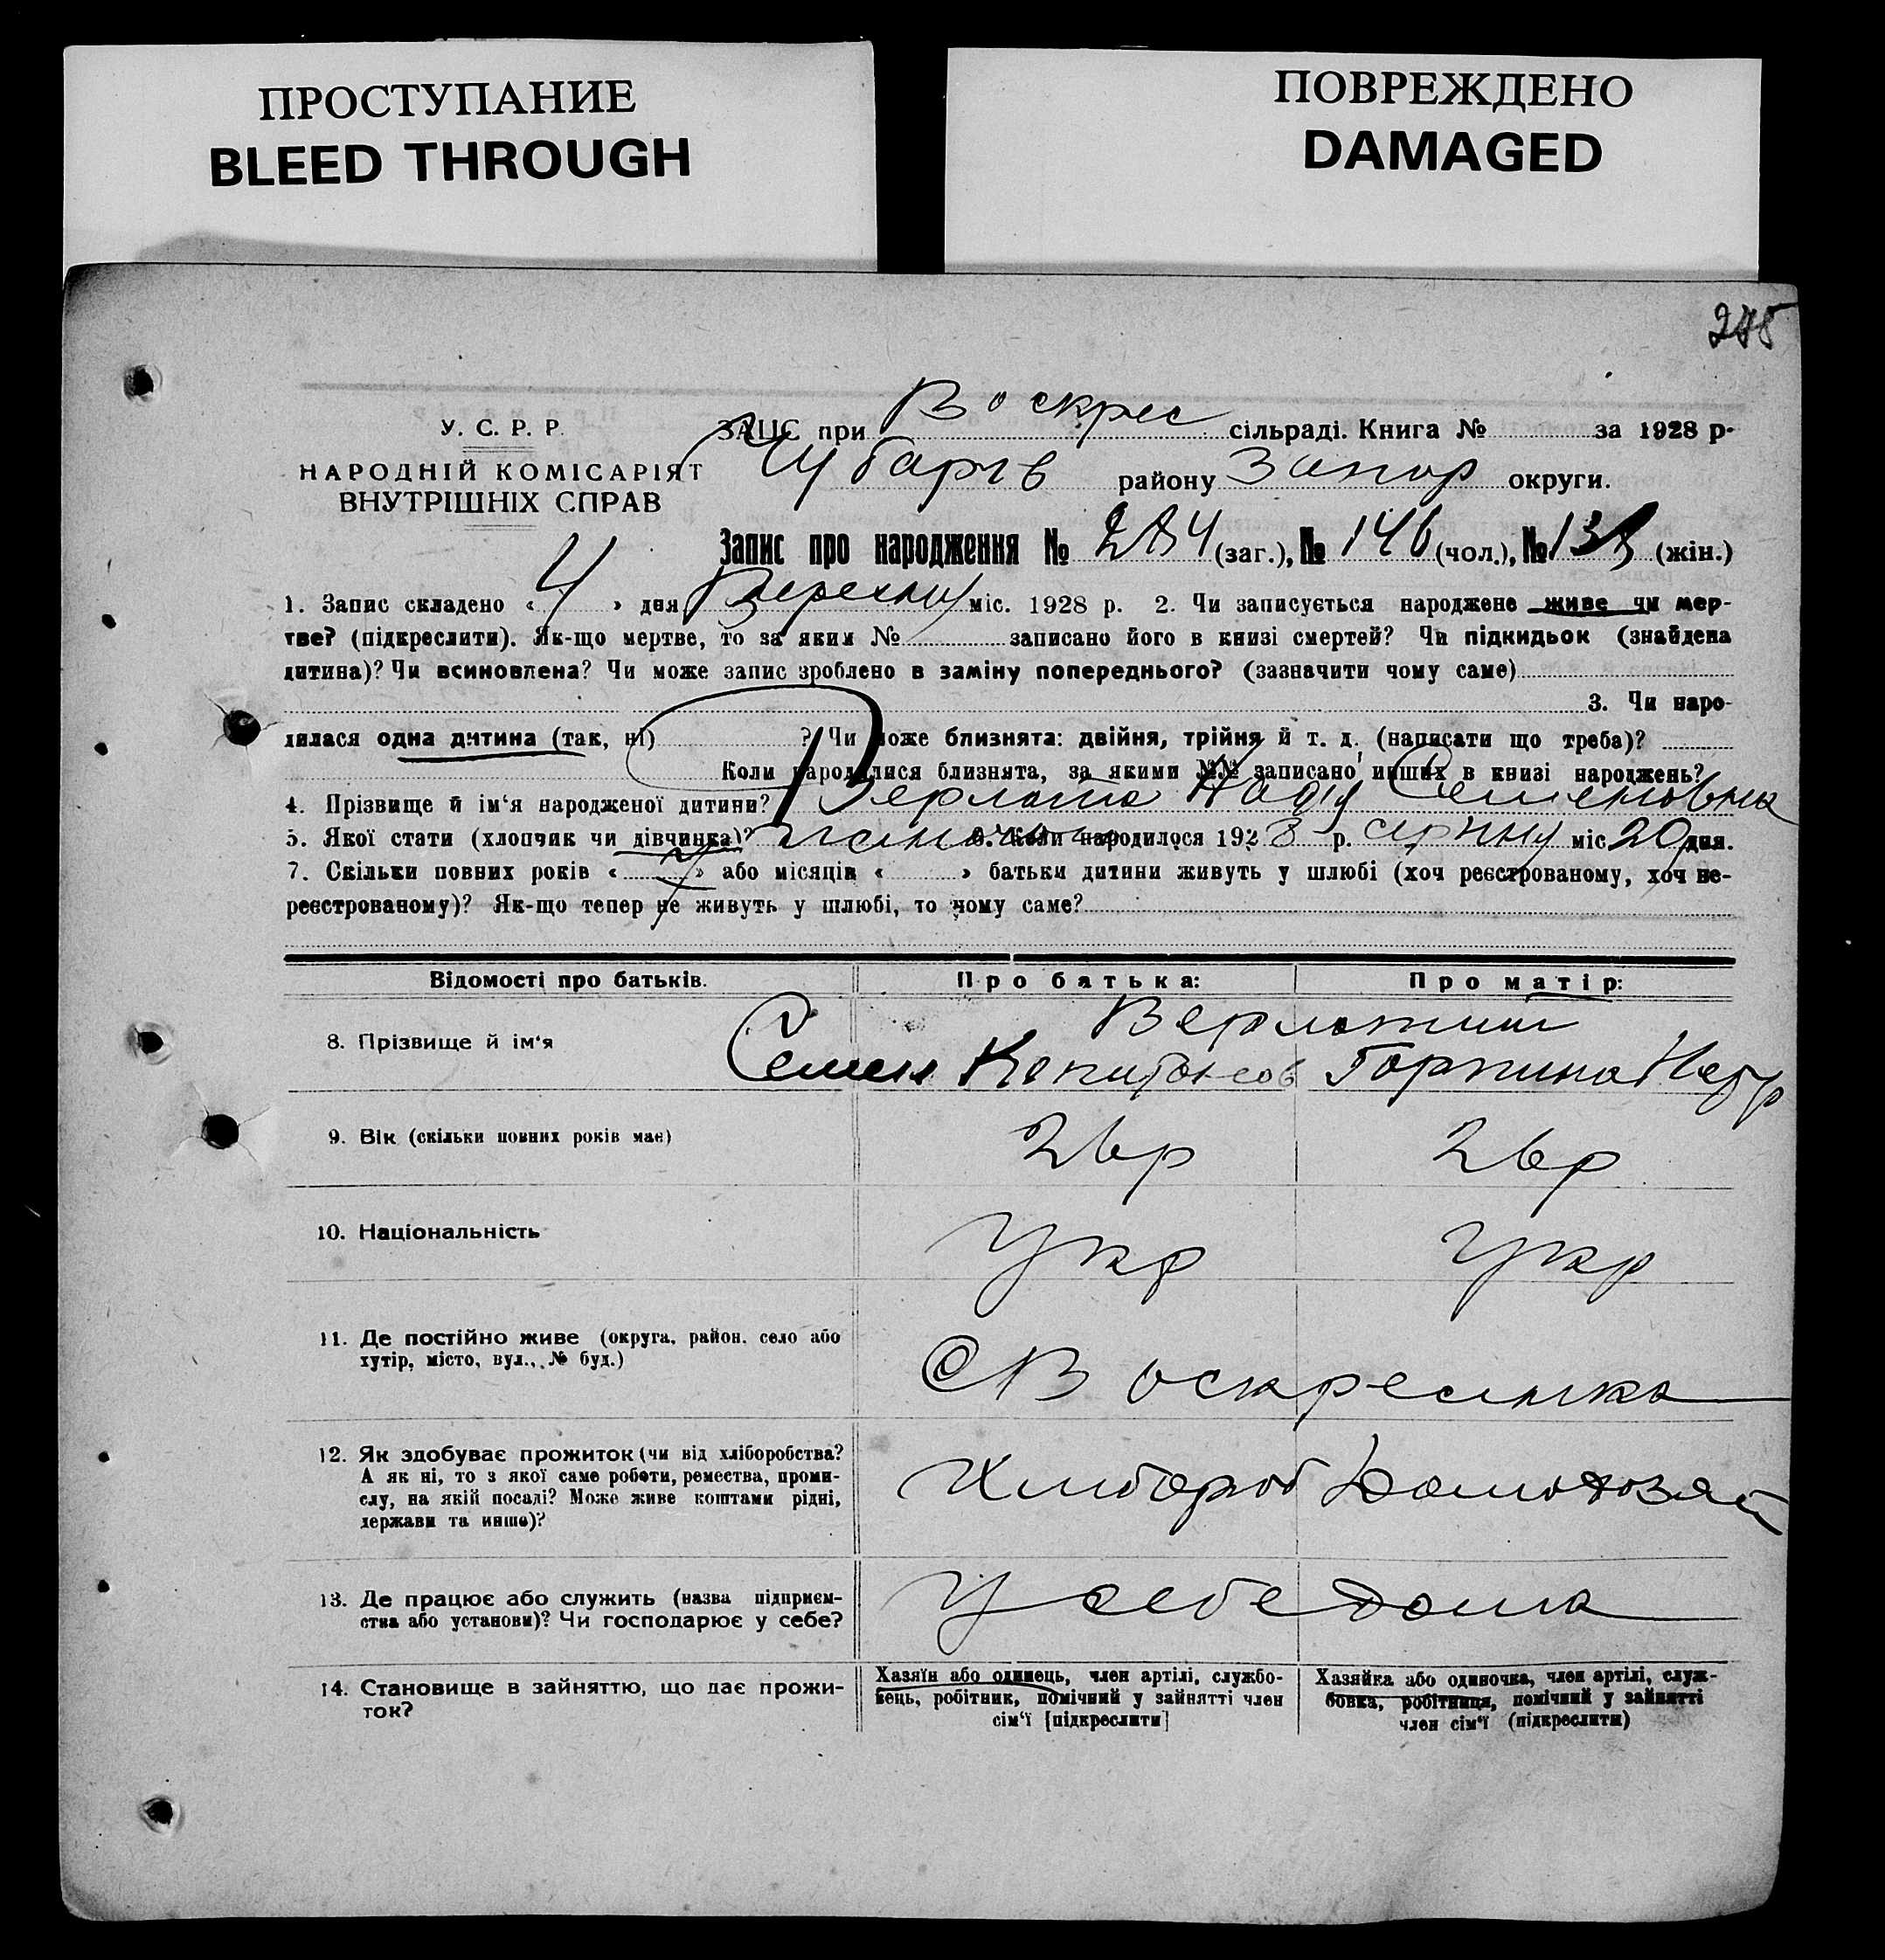 ПРОСТУПАНИЕ
BLEED THROUGH
ПОВРЕЖДЕНО
DAMAGED
У. С. Р. Р.
НАРОДНІЙ КОМІСАРІЯТ
ВНУТРІШНІХ СПРАВ
ЗАЦС при Воскрес сільраді. Книга № за 1928 р.
Чубарів району Запор округи.
Запис про народження № 284 (заг.), № 146 (чол.), № 138 (жін.)
1. Запис складено « 4 » дня Вересня міс. 1928 р. 2. Чи записується народжене живе чи мер-
тве? (підкреслити). Як-що мертве, то за яким № записано його в книзі смертей? Чи підкидьок (знайдена
дитина)? Чи всиновлена? Чи може запис зроблено в заміну попереднього? (зазначити чому саме)
3. Чи наро-
дилася одна дитина (так, ні) ? Чи може близнята: двійня, трійня й т. д. (написати що треба)?
Коли народилися близнята, за якими №№ записано инших в книзі народжень?
4. Прізвище й ім‘я народженої дитини? Надія Семеновна
5. Якої стати (хлопчик чи дівчинка)? 6. Коли народилося 1928 р. серпня міс. 20 дня.
7. Скільки повних років « » або місяців « » батьки дитини живуть у шлюбі (хоч реєстрованому, хоч не-
реєстрованому)? Як-що тепер не живуть у шлюбі, то чому саме?
Відомості про батьків.
Про батька:
Про матір:
8. Прізвище й ім‘я
Семен Горпина
9. Вік (скільки повних років має)
26р 26р
10. Національність
Укр Укр
11. Де постійно живе (округа, район, село або
хутір, місто, вул., № буд.)
С Воскресинка
12. Як здобуває прожиток (чи від хліборобства?
А як ні, то з якої саме роботи, ремества, проми-
слу, на якій посаді? Може живе коштами рідні,
держави та инше)?
Хлибороб Домохозяй
13. Де працює або служить (назва підприєм-
ства або установи)? Чи господарює у себе?
У себе дома
14. Становище в зайняттю, що дає прожи-
ток?
Хазяїн або одинець, член артілі, службо-
вець, робітник, помічний у зайнятті член
сім‘ї [підкреслити]
Хазяйка або одиночка, член артілі, служ-
бовка, робітниця, помічний у зайнятті
член сім‘ї (підкреслити)